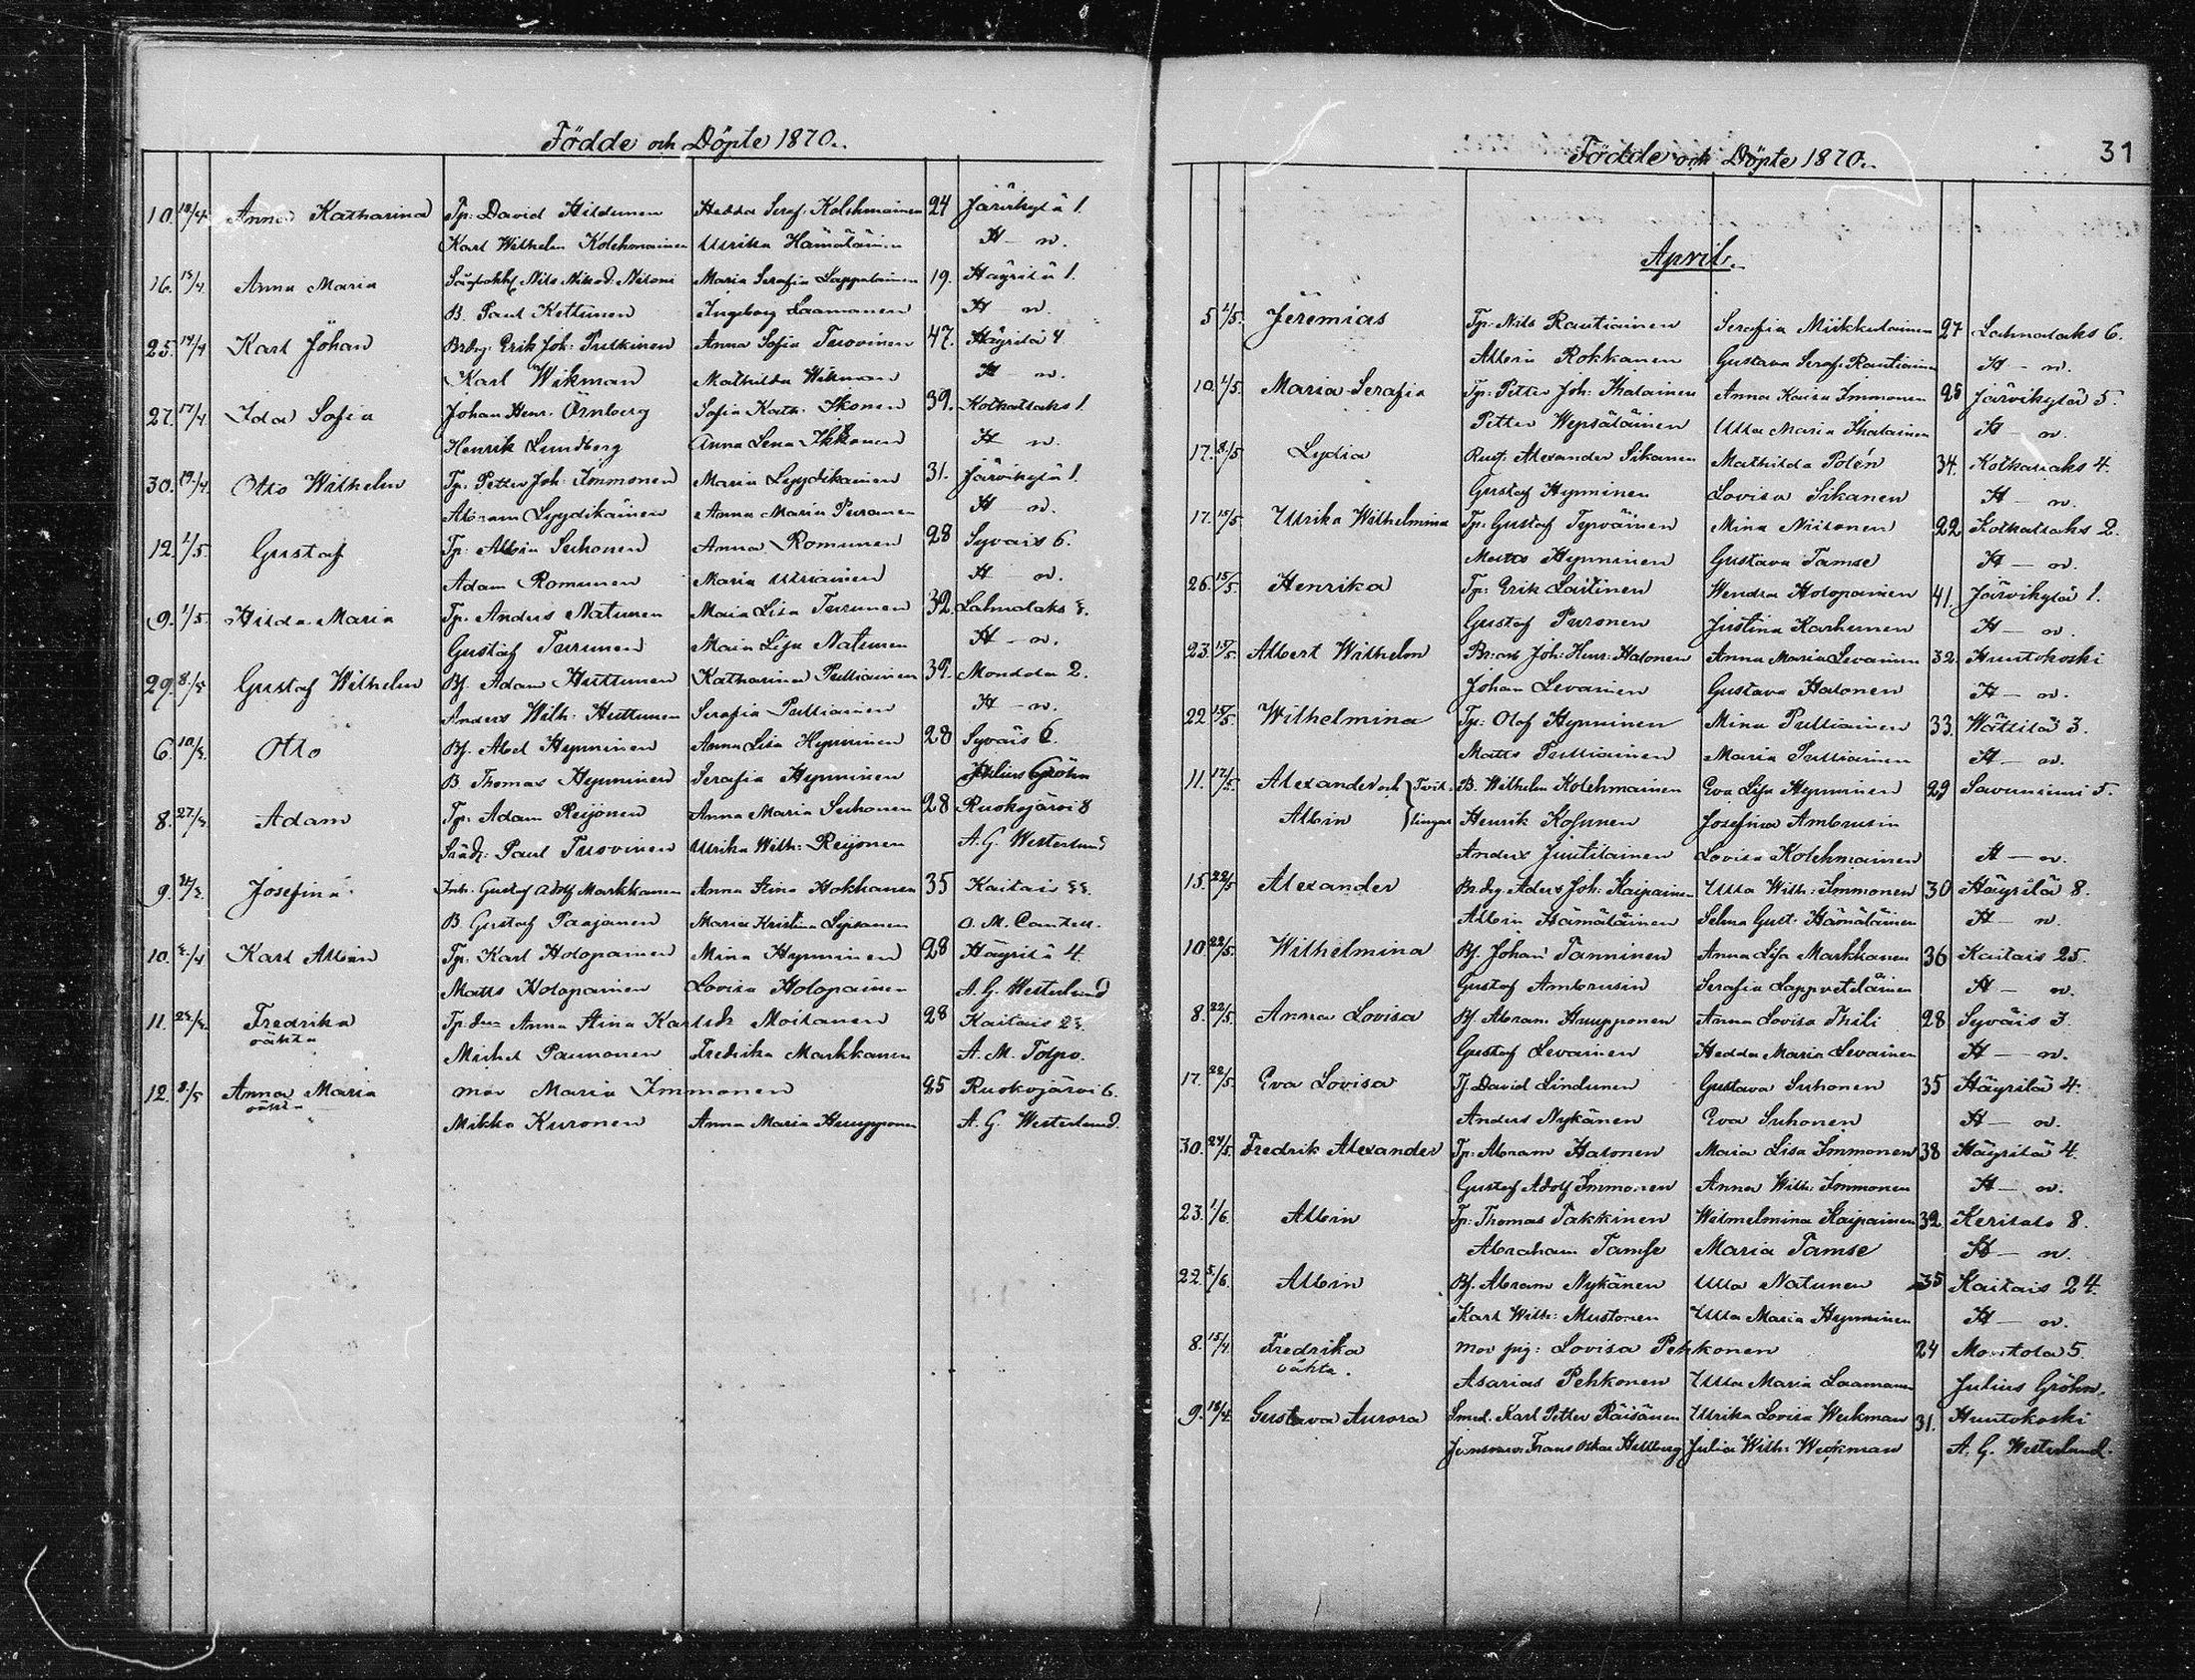 Födde och Döpte 1870.
10. 18/4. Anna Katharina Tp: David Hildunen Hedda Seraf. Kolehmainen 24 Järvikylä 1.
Karl Wilhelm Kolehmainen Ulrika Hämäläinen H – n.
16. 15/4. Anna Maria Nils Maria Serafia Lappalainen 19. Häyrilä 1.
B. Paul Kettunen Ingeborg Laamanen H n.
25. 14/4 Karl Johan Erik Joh: Pulkinen Anna Sofia Tuovinen 47. Häyrilä 4
Karl Wikman Mathilda Wikman H – n.
27. 17/4. Ida Sofia Johan Henr. Örnberg Sofia Kath. Ikonen 39. Kolkallaks 1.
Henrik Lundberg Anna Lena Ikkonen H n.
30. 19/4. Otto Wilhelm Tp. Petter Joh: Immonen Maria Lyydikainen 31. Järvikylä 1.
Abram Lyydikäinen Anna Maria Puranen H n.
12. 1/5 Gustaf Tp: Albin Suhonen Anna Romunen 28 Syväis 6.
Adam Romunen Maria Utriainen H n.
9. 1/5. Hilda Maria Tp. Anders Natunen Maia Lisa Turunen 32. Lahnalaks
Gustaf Turunen Maia Lisa Natunen H – n.
29. 8/5 Gustaf Wilhelm Bf. Adam Huttunen Katharina Pulliainen 39. Mondola 2.
Anders Wilh: Huttunen Serafia Pulliainen H – n.
6. 10/3. Otto Bf. Abel Hynninen Anna Lisa Hynninen 28 Syväis 6.
B. Thomas Hynninen Serafia Hynninen Julius Gröhn
8. 27/3. Adam Tp: Adam Reijonen Anna Maria Suhonen 28 Ruokojärvi 8
Paul Tuovinen Ulrika Wilh: Reijonen A. G. Westerlund
9. Josefina Inh. Gustaf Adolf Markkanen Anna Stina Hokkanen 35 Kaitais
B. Gustaf Paajanen Maria Kristina O. M.
10. Karl Albin Tp. Karl Holopainen Mina Hynninen 28 Häyrilä 4.
Matts Holopainen Lovisa Holopainen A. G. Westerlund
11. Fredrika Anna Stina Moilanen 28 Kaitais
oäkta Michel Paunonen Fredrika Markkanen A. M.
12. 8/5 Anna Maria mor Maria Immonen 25 Ruokojärvi 6.
oäkta Mikko Kuronen Anna Maria Huupponen A. G. Westerlund.
Födde och Döpte 1870.
31
April.
5 1/5. Jeremias Tp: Nils Rautiainen Serafia Miikkulainen 27 Lahnalaks 6.
Albin Rokkanen Gustava Seraf. Rautiainen H – n.
10. 1/5. Maria Serafia Tp: Petter Joh: Ihalainen Anna Kaisa Immonen 25 Järvikylä 5.
Petter Wepsäläinen Ulla Maria Ihalainen H – n.
17. 8/5 Lydia Rust. Alexander Sikanen Mathilda Polén 34. Kolkallaks 4.
Gustaf Hynninen Lovisa Sikanen H – n.
17. 15/5. Ulrika Wilhelmina Tp: Gustaf Tyrväinen Mina Niilonen 22 Kolkallaks 2.
Matts Hynninen Gustava Tamse H – n.
26. 15/5. Henrika Tp: Erik Laitinen Wendla Holopainen 41. Järvikylä 1.
Gustaf Puronen Justina Karhunen H – n.
23. 15/5. Albert Wilhelm Joh: Henr: Halonen Anna Maria Levainen 32 Huutokoski
Johan Levainen Gustava Halonen H – n.
22 15/5. Wilhelmina Tp: Olof Hynninen Mina Pulliainen 33. Wättilä 3.
Matts Pulliainen Maria Pulliainen H – n.
11. 17/5. Alexander och Tvil- B. Wilhelm Kolehmainen Eva Lisa Hynninen 29 Savuniemi 5.
Albin lingar Henrik Kosunen Josefina Ambrusin
Anders Juutilainen Lovisa Kolehmainen H – n.
15. 22/5 Alexander Joh: Kaipainen Ulla Wilh: Immonen 30 Häyrilä 8.
Albin Hämäläinen Selma Gust. Hämäläinen H – n.
10 22/5. Wilhelmina Bf. Johan Tanninen Anna Lisa Markkanen 36 Kaitais 25.
Gustaf Ambrusin Serafia Lappveteläinen H – n.
8. 22/5. Anna Lovisa Bf. Abram Huupponen Anna Lovisa Thili 28 Syväis 3.
Gustaf Levainen Hedda Maria Levainen H – n.
17. 22/5. Eva Lovisa David Lindunen Gustava Suhonen 35 Häyrilä 4.
Anders Nykänen Eva Suhonen H – n.
30. 24/5. Fredrik Alexander Tp: Abram Halonen Maria Lisa Immonen 38 Häyrilä 4.
Gustaf Adolf Immonen Anna Wilh: Immonen H – n.
23. 1/6. Albin Tp: Thomas Takkinen Wilmelmina Kaipainen 32 Kerisalo 8.
Abraham Tamse Maria Tamse H – n.
22. 5/6. Albin Bf. Abram Nykänen Ulla Natunen 35 Kaitais 24.
Karl Wilh: Mustonen Ulla Maria Hynninen H – n.
8. 15/4. Fredrika mor pig: Lovisa Pehkonen 24 Montola 5.
oäkta. Asarias Pehkonen Ulla Maria Laamanen Julius Gröhn.
9. 18/4. Gustava Aurora Smed. Karl Petter Räisänen Ulrika Lovisa Weckman 31. Huutokoski
Frans Oskar Hellberg Julia Wilh: Weckman A. G. Westerlund.